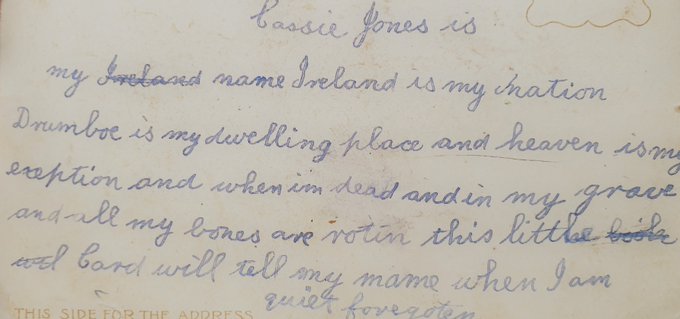 Cassie Jones is
my Ireland name Ireland is my nation
Drumboe is my dwelling place and heaven is my
exeption and when im dead and in my grave
and all my bones are rotin this little book
wil Card will tell my mame when I am
quiet foregoten
THIS SIDE FOR THE ADDRESS